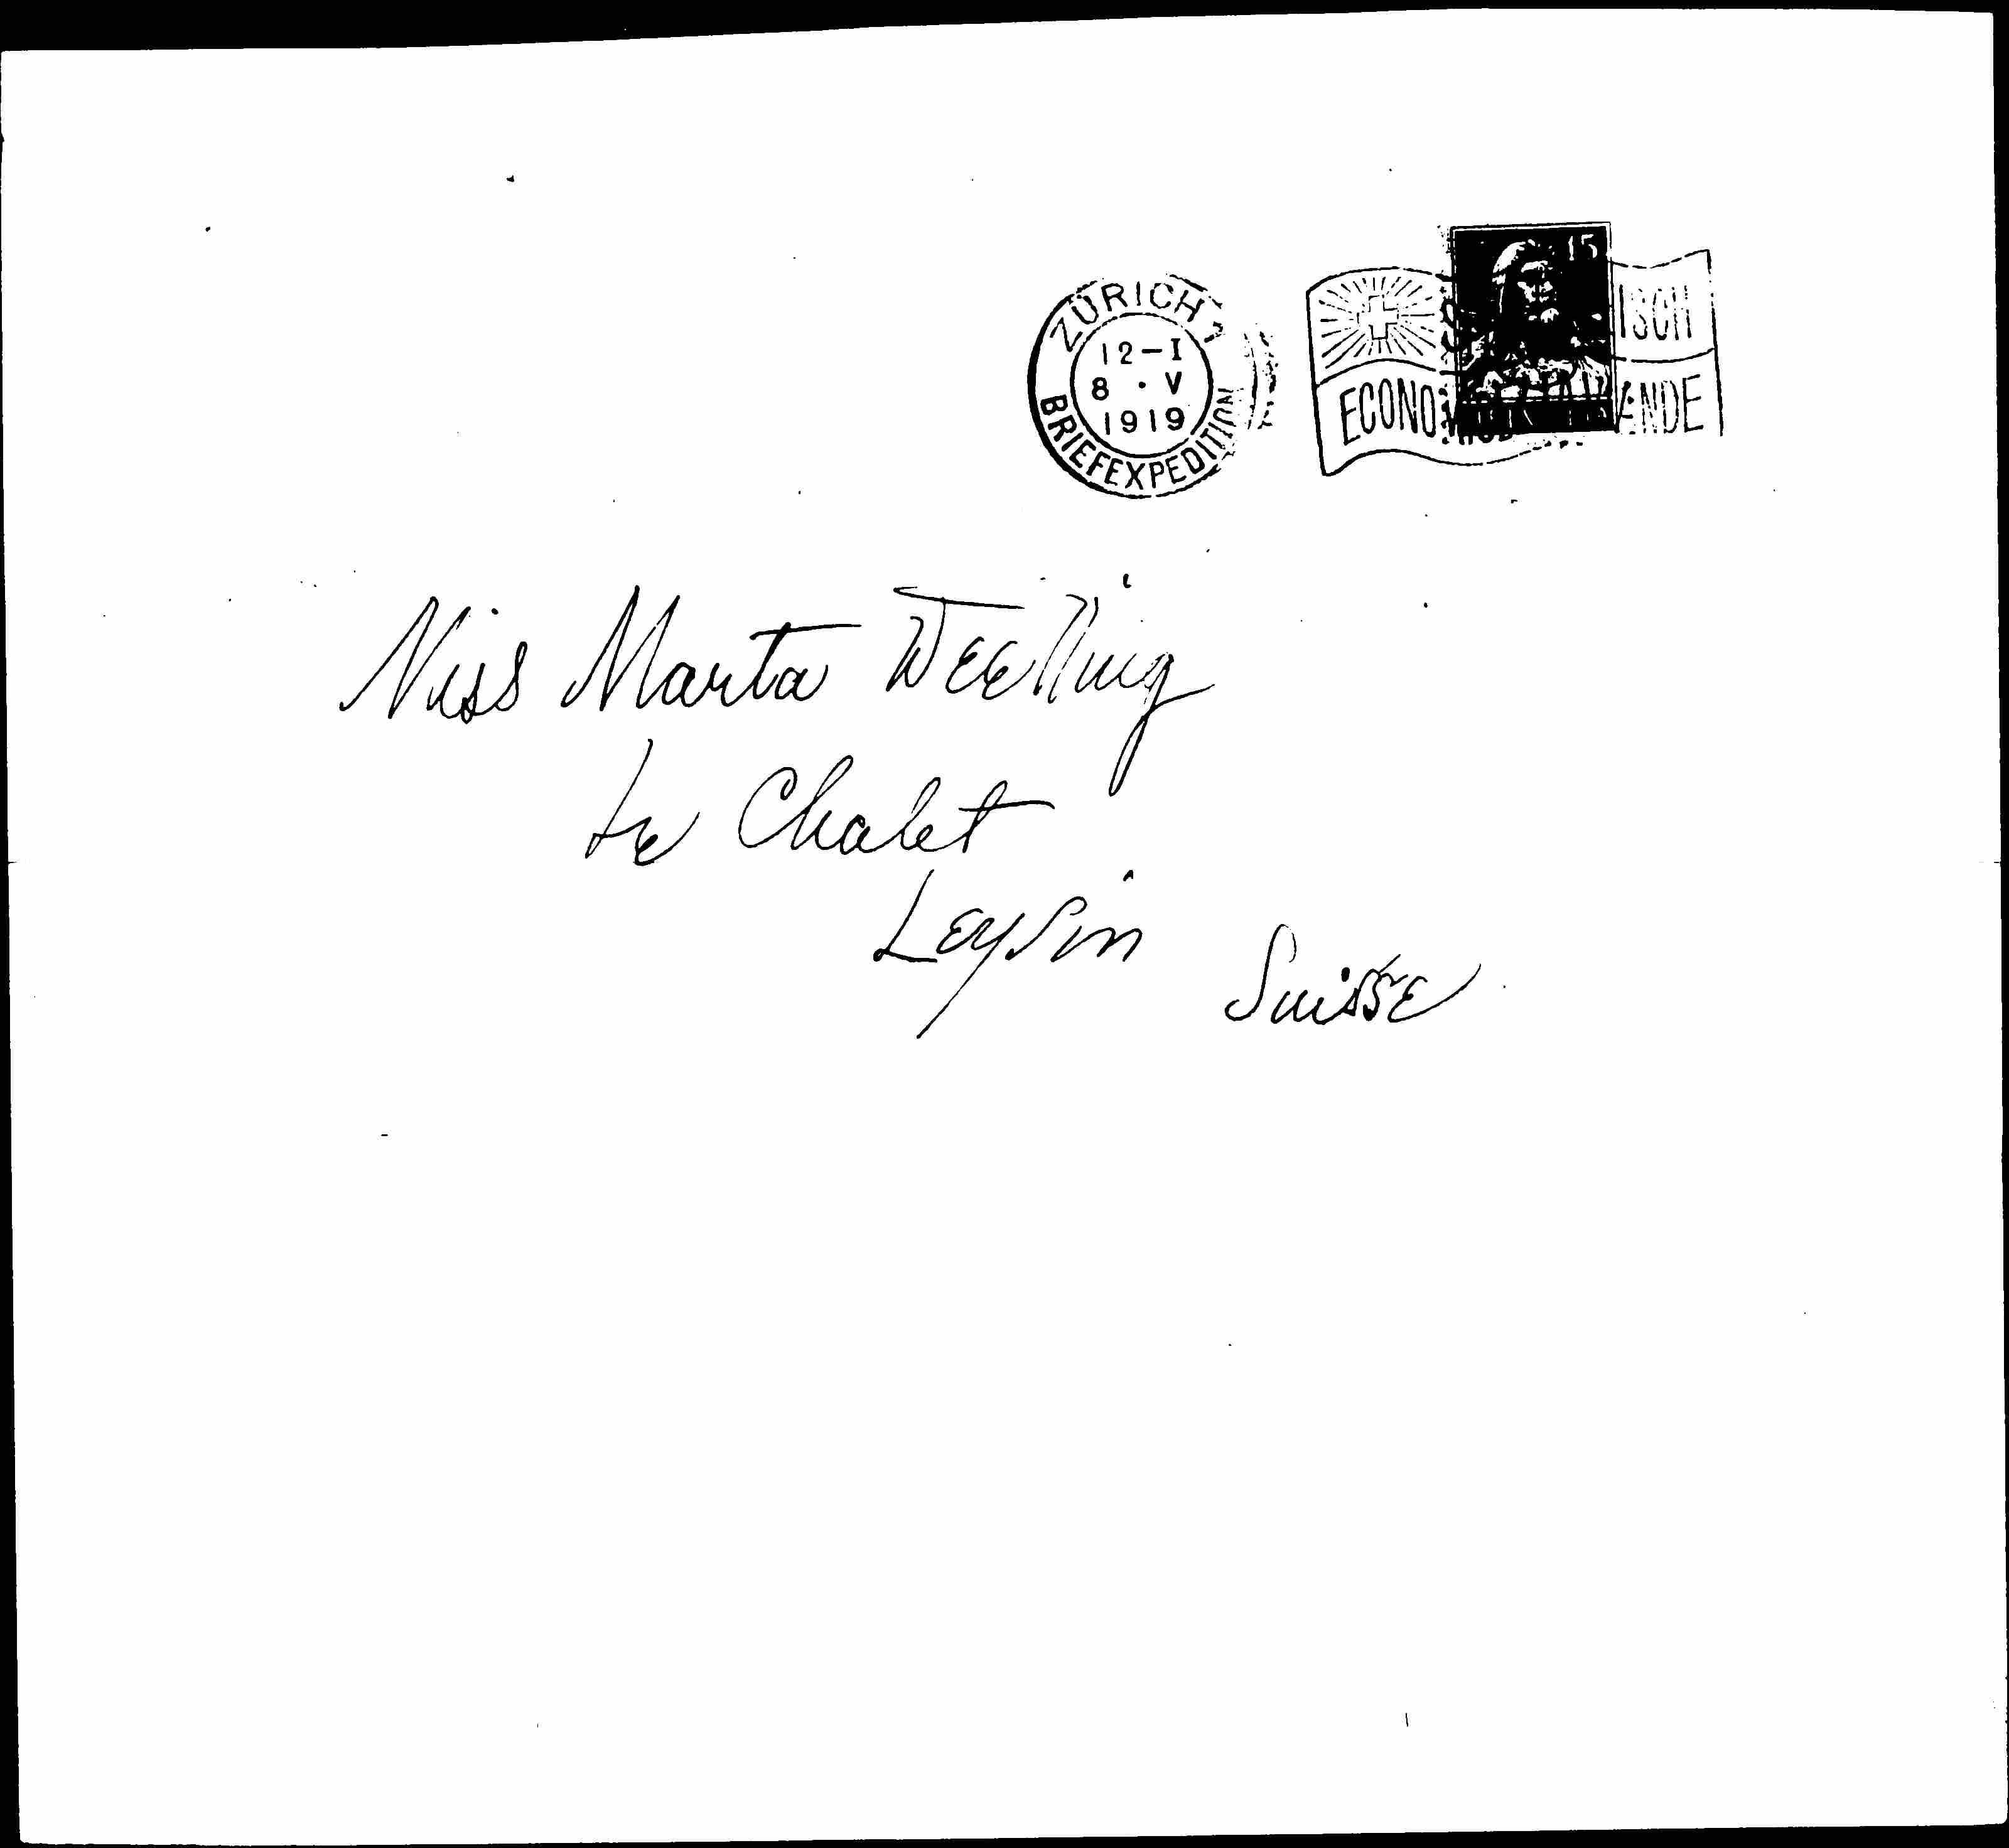 ZÜRICH 1
12–I
8 · V
1919
BRIEFEXPEDITION
15
ISCH
ECONO
ANDE
Miss Marta
Le Chalet
Leysin
Suisse